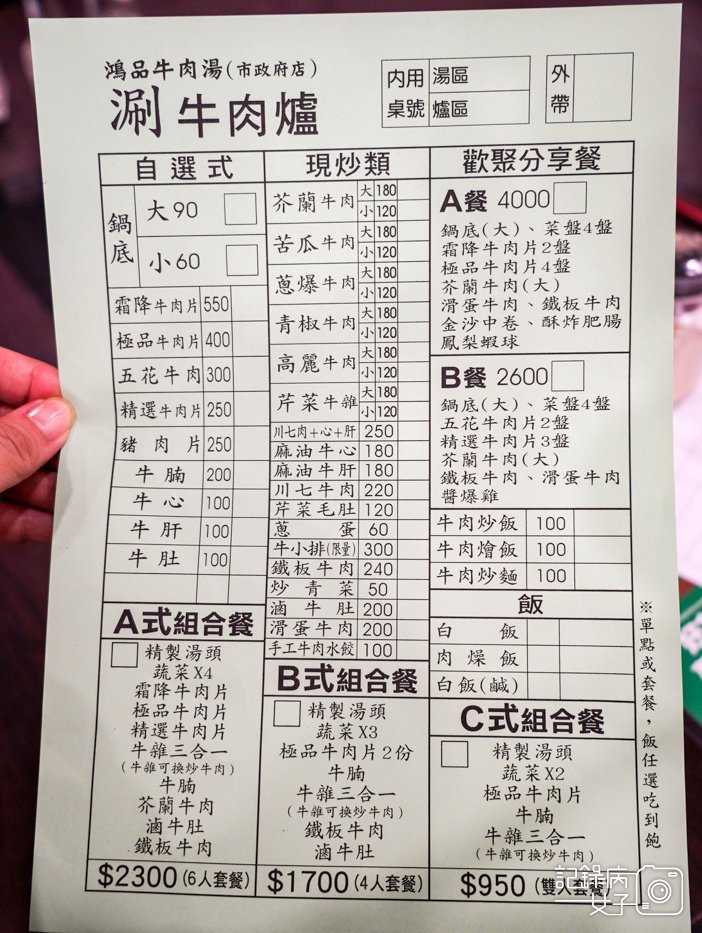 鴻品牛肉湯(市政府店)
涮牛肉爐
內用 湯區
桌號 爐區
外帶
自選式
鍋底
大90
小60
霜降牛肉片 550
極品牛肉片 400
五花牛肉 300
精選牛肉片 250
豬肉片 250
牛腩 200
牛心 100
牛肝 100
牛肚 100
現炒類
芥蘭牛肉 大180 小120
苦瓜牛肉 大180 小120
蔥爆牛肉 大180 小120
青椒牛肉 大180 小120
高麗牛肉 大180 小120
芹菜牛雜 大180 小120
川七肉+心+肝 250
麻油牛心 180
麻油牛肝 180
川七牛肉 220
芹菜毛肚 120
蔥蛋 60
牛小排(限量) 300
鐵板牛肉 240
炒青菜 50
滷牛肚 200
滑蛋牛肉 200
手工牛肉水餃 100
歡聚分享餐
A餐 4000
鍋底(大)、菜盤4盤
霜降牛肉片2盤
極品牛肉片4盤
芥蘭牛肉(大)
滑蛋牛肉、鐵板牛肉
金沙中卷、酥炸肥腸
鳳梨蝦球
B餐 2600
鍋底(大)、菜盤4盤
五花牛肉片2盤
精選牛肉片3盤
芥蘭牛肉(大)
鐵板牛肉、滑蛋牛肉
醬爆雞
牛肉炒飯 100
牛肉燴飯 100
牛肉炒麵 100
飯
白飯
肉燥飯
白飯(鹹)
※單點或套餐，飯任選吃到飽
A式組合餐
精製湯頭
蔬菜X4
霜降牛肉片
極品牛肉片
精選牛肉片
牛雜三合一
(牛雜可換炒牛肉)
牛腩
芥蘭牛肉
滷牛肚
鐵板牛肉
$2300(6人套餐)
B式組合餐
精製湯頭
蔬菜X3
極品牛肉片2份
牛腩
牛雜三合一
(牛雜可換炒牛肉)
鐵板牛肉
滷牛肚
$1700(4人套餐)
C式組合餐
精製湯頭
蔬菜X2
極品牛肉片
牛腩
牛雜三合一
(牛雜可換炒牛肉)
$950(雙人套餐)